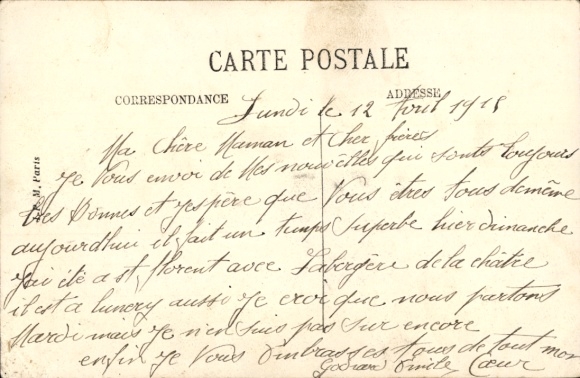 CARTE POSTALE
CORRESPONDANCE
ADRESSE
Lundi le 12 Avril 1915
Ma Chère Maman et Cher frères
Je Vous envoi de Mes nouvelles qui sonts toujours
très Bonnes et j'espère que Vous êtres tous de même
aujourdhui il fait un temps superbe hier dimanche
j'ai été a st florent avec Labergère de la châtre
il est a lunery aussi je croi que nous partons
Mardi mais je n'en suis pas sur encore
enfin je Vous Embrasses tous de tout mon
Cœur
Emile
M. Paris